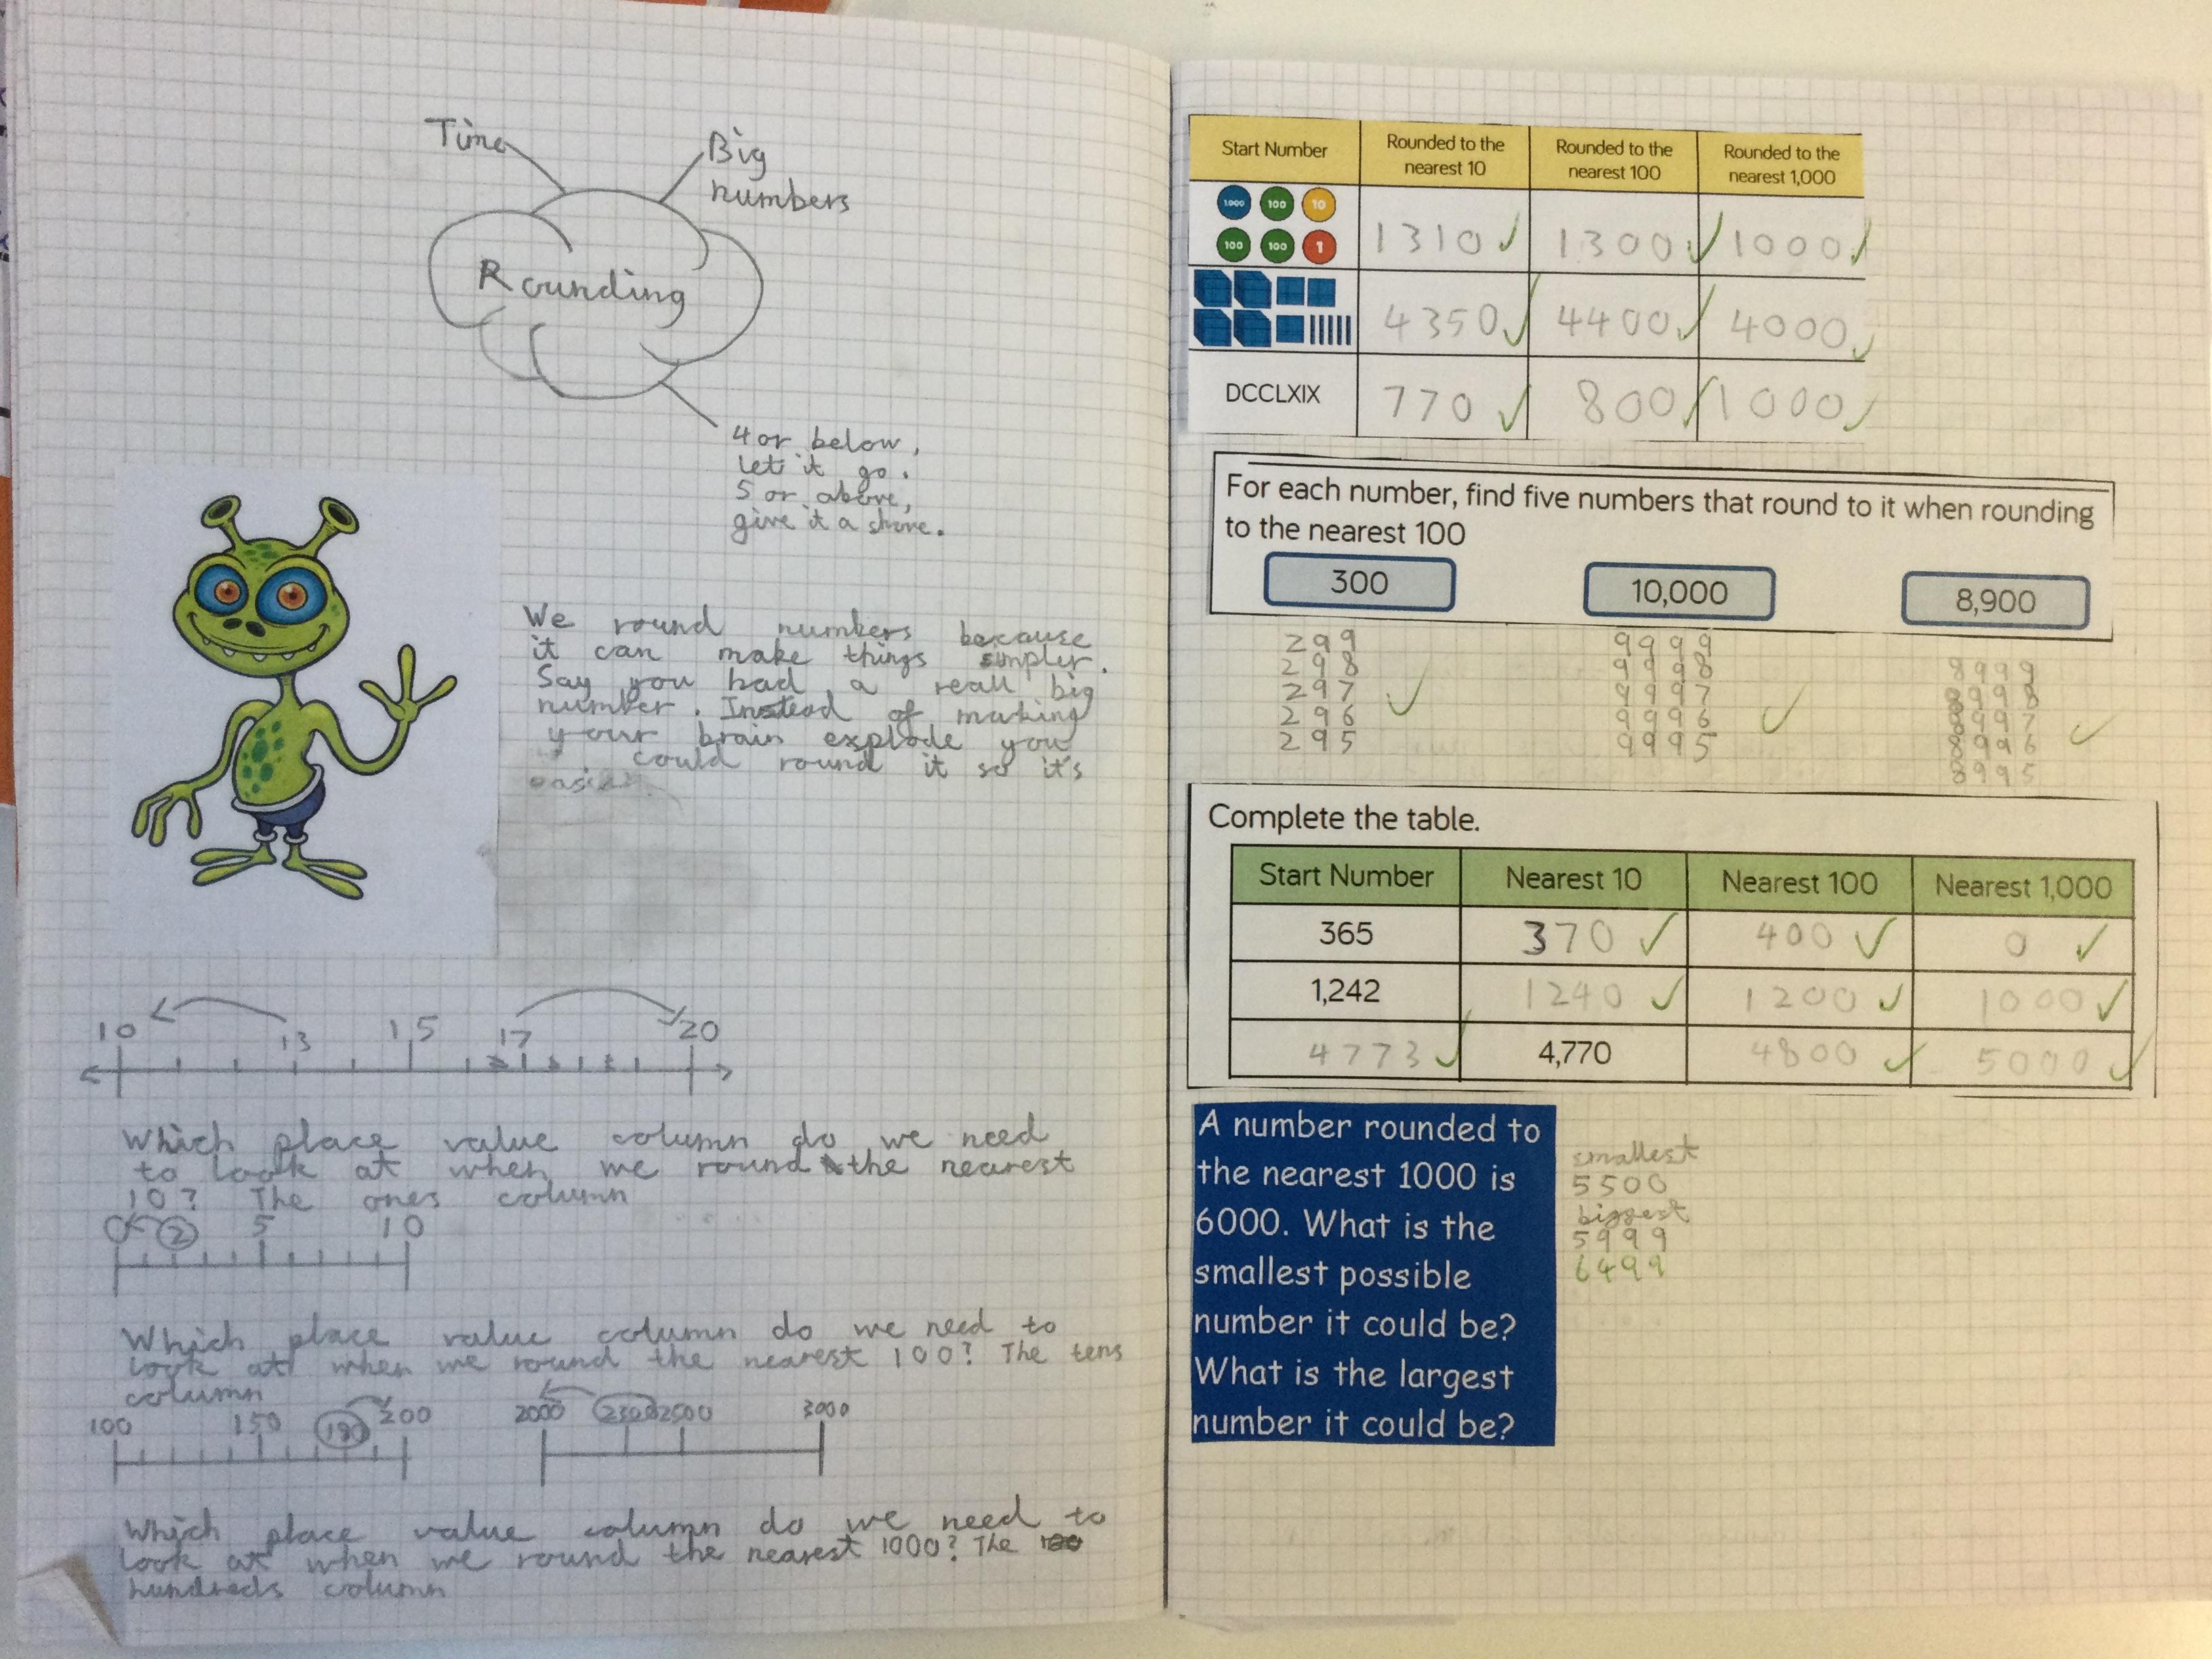 Time
Big
numbers
Rounding
4 or below,
let it go.
5 or above,
give it a shove.
We round numbers because
it can make things simpler.
Say you had a reall big
number. Instead of making
your brain explode you
could round it so it's
easier
10 13 15 17 20
Which place value column do we need
to look at when we round the nearest
10? The ones column
0 2 5 10
Which place value column do we need to
look at when we round the nearest 100? The tens
column
100 150 190 200
2000 2300 2500 3000
Which place value column do we need to
look at when we round the nearest 1000? The
hundreds column
Start Number
Rounded to the
nearest 10
Rounded to the
nearest 100
Rounded to the
nearest 1,000
1,000 100 10
100 100 1
1310 1300 1000
4350 4400 4000
DCCLXIX 770 800 1000
For each number, find five numbers that round to it when rounding
to the nearest 100
300 10,000 8,900
299
298
297
296
295
9999
9998
9997
9996
9995
8999
8998
8997
8996
8995
Complete the table.
Start Number Nearest 10 Nearest 100 Nearest 1,000
365 370 400 0
1,242 1240 1200 1000
4773 4,770 4800 5000
A number rounded to
the nearest 1000 is
6000. What is the
smallest possible
number it could be?
What is the largest
number it could be?
smallest
5500
biggest
5999
6499